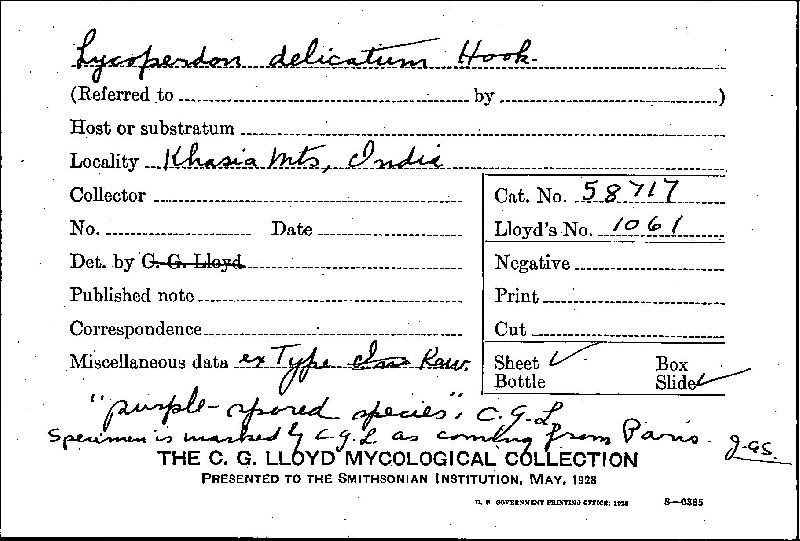 Lycoperdon delicatum Hook.
(Referred to by )
Host or substratum
Locality Khasia Mts, India
Collector
Cat. No. 58717
No. Date
Lloyd's No. 1061
Det. by C. G. Lloyd
Negative
Published note
Print
Correspondence
Cut
Miscellaneous data ex Type Kew.
Sheet ✓ Box
Bottle Slide ✓
"purple-spored species". C.G.L.
Specimen is marked by C.G.L as coming from Paris. J.A.S.
THE C. G. LLOYD MYCOLOGICAL COLLECTION
PRESENTED TO THE SMITHSONIAN INSTITUTION, MAY, 1928
U. S. GOVERNMENT PRINTING OFFICE: 1928 8—6385